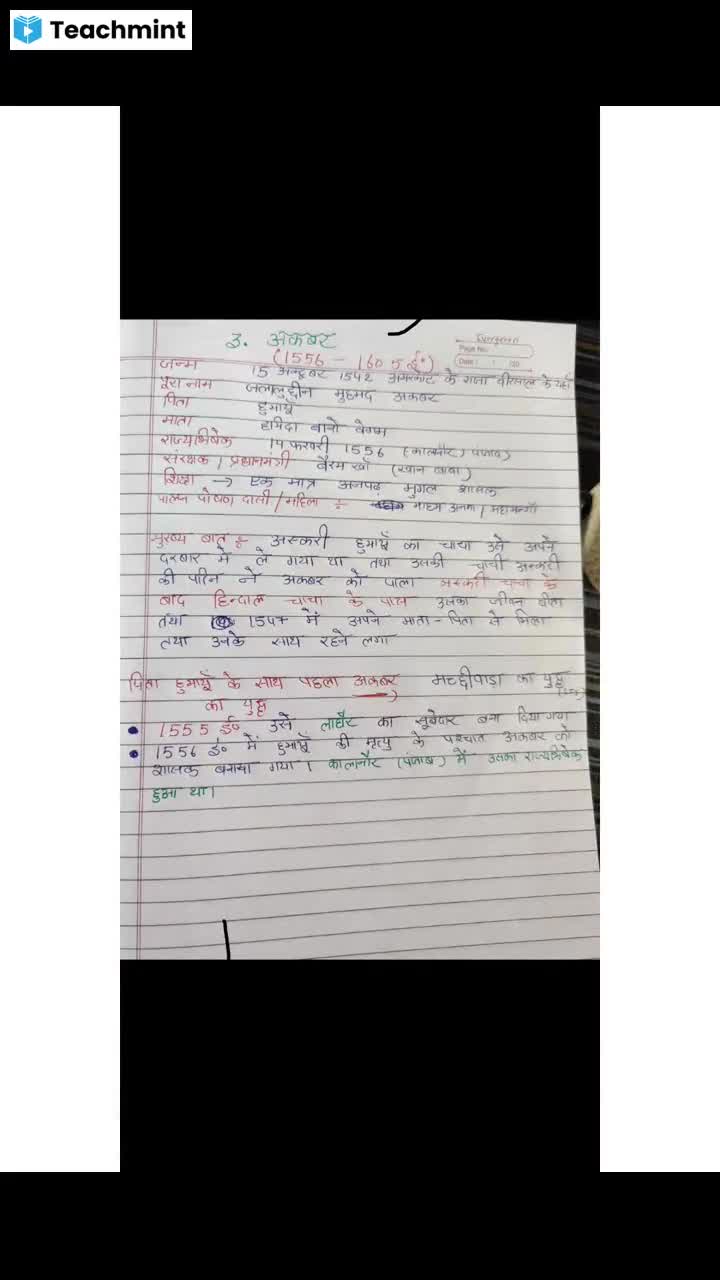 Teachmint
3. अकबर
(1556 - 1605 ई०)
Evergreen
Page No.
Date: / /20
जन्म 15 अक्टूबर 1542 अमरकोट के राजा वीरसाल के यहाँ
पूरा नाम जलालुद्दीन मुहमद अकबर
पिता हुमायूँ
माता हमिदा बानो बेगम
राज्यभिषेक 14 फरवरी 1556 (कालानौर) पंजाब)
संरक्षक / प्रधानमंत्री बैरम खाँ (खान बाबा)
शिक्षा → एक मात्र अनपढ़ मुगल शासक
पालन पोषण दासी / महिला : माहम अनगा /
मुख्य बात : अस्करी हुमायूँ का चाचा उसे अपने
दरबार में ले गया था तथा उसकी चाची अस्करी
की पत्नि ने अकबर को पाला अस्करी चाचा के
बाद हिन्दाल चाचा के पास उसका जीवन बीता
तथा 1547 में अपने माता-पिता से मिला
तथा उनके साथ रहने लगा
पिता हुमायूँ के साथ पहला अकबर मच्छीवाड़ा का युद्ध
का युद्ध
1555 ई० उसे लाहौर का सूबेदार बना दिया गया
1556 ई० में हुमायूँ की मृत्यु के पश्चात अकबर को
शासक बनाया गया। कालानौर (पंजाब) में उसका राज्यभिषेक
हुआ था।